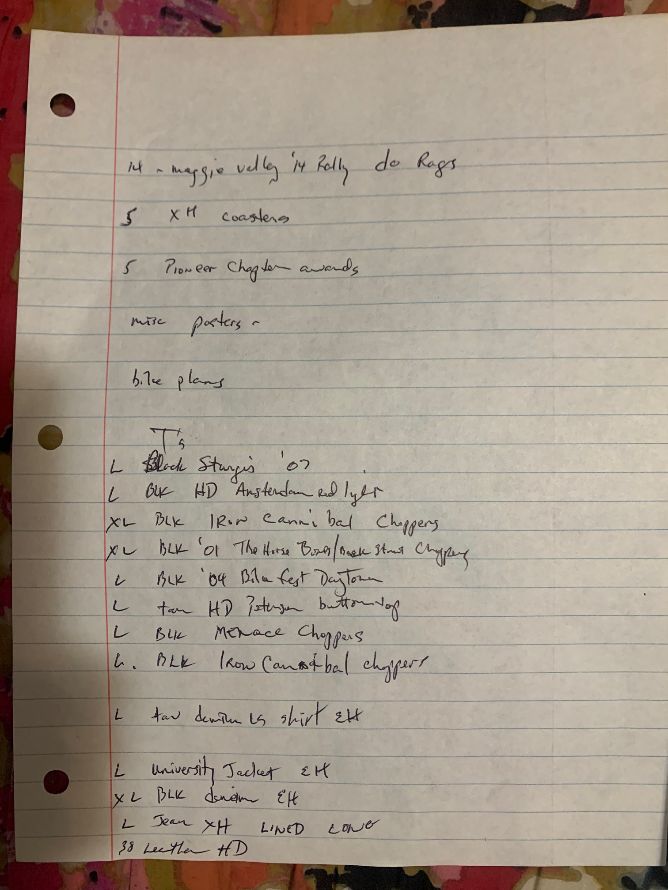 14 - maggie valley '14 Rally do Rags
5 XH coasters
5 Pioneer Chapter awards
misc posters -
bike plans
T's
L Black Sturgis '07
L BLK HD Amsterdam red light
XL BLK Iron Cannibal Choppers
XL BLK '01 The Horse Boxes/Back Street Choppers
L BLK '04 Bike fest Daytona
L tan HD Peterson button top
L BLK Menace Choppers
L. BLK Iron Cannibal choppers
L tan denim LS shirt EH
L University Jacket EH
XL BLK denim EH
L Jean XH LINED LONG
38 Leather HD